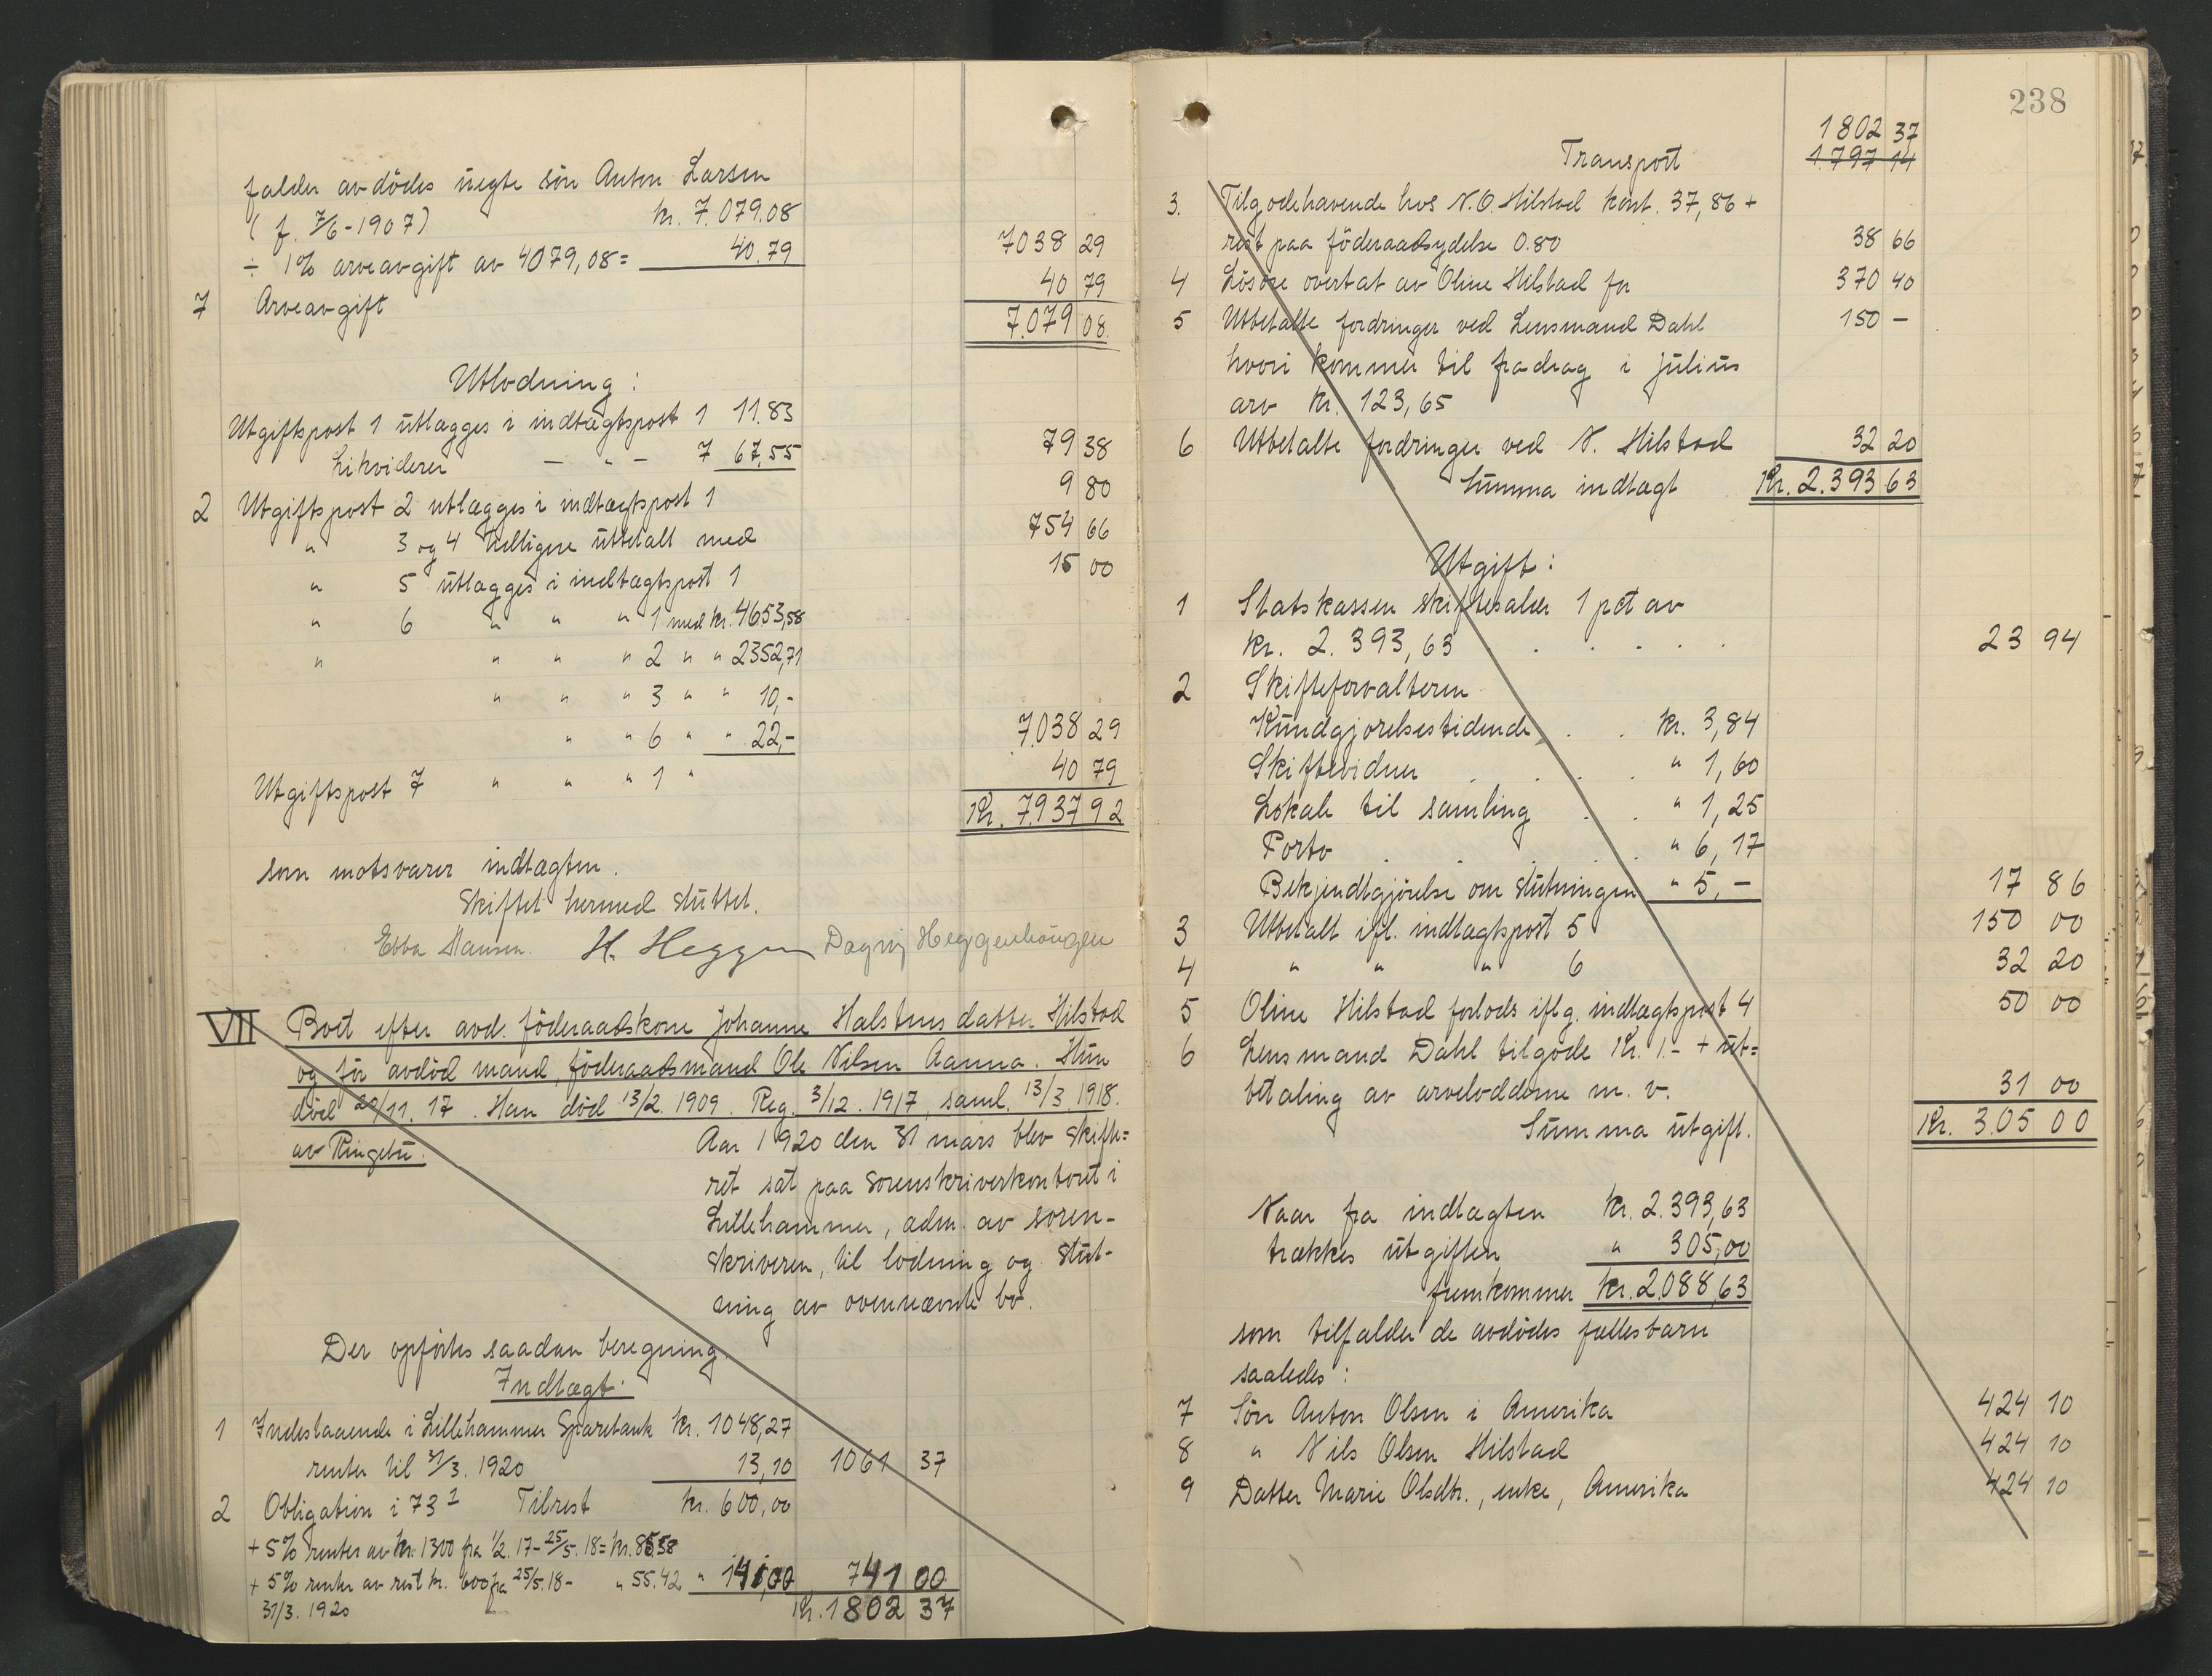 falder avdödes uegte sön Anton Larsen
( f. 7/6-1907) kr. 7.079.08
÷ 1% arveavgift av 4079,08= 40.79 7038 29
7 Arveavgift 40 79
7.079 08.
Utlodning :
Utgiftspost 1 utlægges i indtægtspost 1 11.83
Likviderer — " — 7 67,55 79 38
2 Utgiftspost 2 utlægges i indtægtspost 1 9 80
" 3 og 4 tidligere utbetalt med 754 66
" 5 utlægges i indtægtspost 1 15 00
" 6 " " " 1 med kr. 4653,58
" " " " 2 " " 2352,71
" " " 3 " " 10,-
" " 6 " " 22,- 7.038 29
Utgiftspost 7 " " " 1 " 40 79
Kr. 7.937 92
som motsvarer indtægten.
Skiftet hermed sluttet.
Ebba Hansen. H. Heggen Dagny Heggenhougen
VII Boet efter avd. föderaadskone Johanne Halstensdatter Hilstad
og för avdöd mand, föderaadsmand Ole Nilsen Aanna. Hun
död 20/11. 17. Han död 13/2. 1909. Reg. 3/12. 1917, saml. 13/3. 1918.
av Ringebu.
Aar 1920 den 31 mars blev skifte=
ret sat paa sorenskriverkontoret i
Lillehammer, adm. av soren-
skriveren, til lodning og slut-
ning av ovennævnte bo.
Der opförtes saadan beregning.
Indtægt.
1 Indestaaende i Lillehammer Sparebank kr. 1048,27
renter til 31/3. 1920 13,10 1061 37
2 Obligation i 73 1 Tilrest kr. 600,00
+ 5% renter av kr. 1300 fra 1/2. 17- 25/5. 18= kr. 85.58
+ 5% renter av rest kr. 600 fra 25/5.18- " 55.42 " 141,00 741 00
31/3. 1920 Kr. 1802 37
238
1802 37
Transport 1797 14
3. Tilgodehavende hos N.O. Hilstad kont. 37,86 +
rest paa föderaadsydelse 0.80 38 66
4 Lösöre overtat av Oline Hilstad for 370 40
5 Utbetalte fordringer ved Lensmand Dahl 150 -
hvori kommer til fradrag i Julius
arv kr. 123,65
6 Utbetalte fordringer ved N. Hilstad 32 20
Summa indtægt Kr. 2.393 63
Utgift :
1 Statskassen skiftesalær 1 pct av
kr. 2.393,63 . . . . . 23 94
2 Skifteforvalteren
Kundgjorelsestidende . . kr. 3,84
Skiftevidner . . . . " 1,60
Lokale til samling . . " 1,25
Porto . . . . " 6,17
Bekjendtgjörelse om slutningen " 5,- 17 86
3 Utbetalt ifl. indtægtspost 5 150 00
4 " " " 6 32 20
5 Oline Hilstad forlods iflg. indtægtspost 4 50 00
6 Lensmand Dahl tilgode Kr. 1.- + ut=
betaling av arveloddene m. v. 31 00
Summa utgift. Kr. 305 00
Naar fra indtægten kr. 2.393,63
trækkes utgiften " 305,00
fremkommer kr. 2.088,63
som tilfalder de avdödes fællesbarn
saaledes :
7 Sön Anton Olsen i Amerika 424 10
8 " Nils Olsen Hilstad 424 10
9 Datter Marie Olsdtr., enke, Amerika 424 10